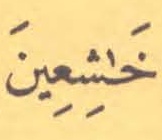 خَٰشِعِينَ